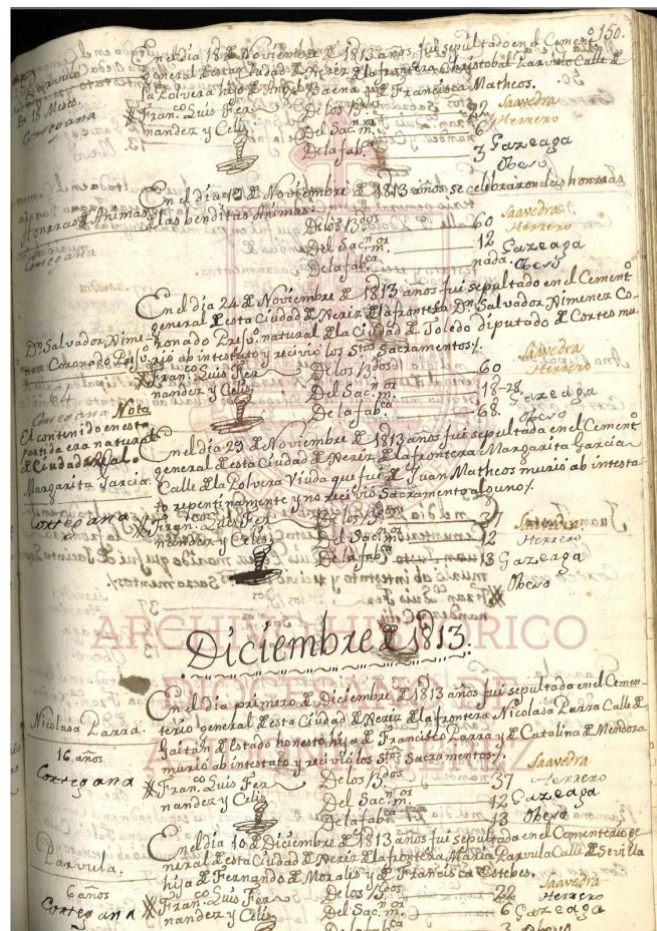 150.
Parvulo
En 18 Meses.
Cortegana
En el dia 18 de Noviembre de 1813 años fui sepultado en el Cement.º
general de esta Ciudad de Xerèz de la frontera Christobal Parvulo Calle de
la Polvera hijo de Angel Baena y de Francisca Matheos.
Fran.co Luis Fer
nandez y Celis
De los B.dos 22 Saavedra
Del Sac.m.or 6 Herrero
De la fab.ca 3 Gazeaga
Obero
Honras de Animas
Cortegana
En el dia 19 de Noviembre de 1813 años se celebraron las honras
de las benditas Animas.
De los B.dos 60 Saavedra
Del Sac.m.or 12 Herrero
De la fab.ca nada. Gazeaga
Obero
Dn. Salvador Xime-
nez Coronado
64
Cortegana
En el dia 24 de Noviembre de 1813 años fui sepultado en el Cement.º
general de esta Ciudad de Xerèz de la frontera Dn. Salvador Ximenez Co-
ronado Presv.º natural de la Ciudad de Toledo diputado de Cortes mu-
rió ab intestato y recivió los S.tos Sacramentos.
Fran.co Luis Fer
nandez y Celis
De los B.dos 60 Saavedra
Del Sac.m.or 18-28 Herrero
De la fab.ca 68. Gazeaga
Obero
Nota
El contenido en esta
partida era natural
de Ciudad Real.
Margarita Garcia.
Cortegana
En el dia 29 de Noviembre de 1813 años fui sepultada en el Cement.º
general de esta Ciudad de Xerèz de la frontera Margarita Garcia
Calle de la Polvera Viuda que fue de Juan Matheos murió ab intesta-
to repentinamente y no recivió Sacramento alguno.
Fran.co Luis Fer
nandez y Celis
De los B.dos 37 Saavedra
Del Sac.m.or 12 Herrero
De la fab.ca 13 Gazeaga
Obero
Diciembre de 1813.
Nicolasa Parra.
16 años
Cortegana
En el dia primero de Diciembre de 1813 años fui sepultada en el Cemen-
terio general de esta Ciudad de Xerèz de la frontera Nicolasa Parra Calle de
Gaitán de Estado honesto hija de Francisco Parra y de Catalina de Mendoza
murió ab intestato y recivió los S.tos Sacramentos.
Fran.co Luis Fer
nandez y Celis
De los B.dos 37 Saavedra
Del Sac.m.or 12 Herrero
De la fab.ca 13 Gazeaga
Obero
Parvula.
6 años
Cortegana
En el dia 10 de Diciembre de 1813 años fui sepultada en el Cementerio ge-
neral de esta Ciudad de Xerèz de la frontera Maria Parvula Calle de Sevilla
hija de Fernando de Morales y de Francisca Estebes.
Fran.co Luis Fer
nandez y Celis
De los B.dos 22 Saavedra
Del Sac.m.or 6 Herrero
De la fab.ca 3 Gazeaga
Obero
ARCHIVO HISTÓRICO
DIOCESANO DE
JEREZ